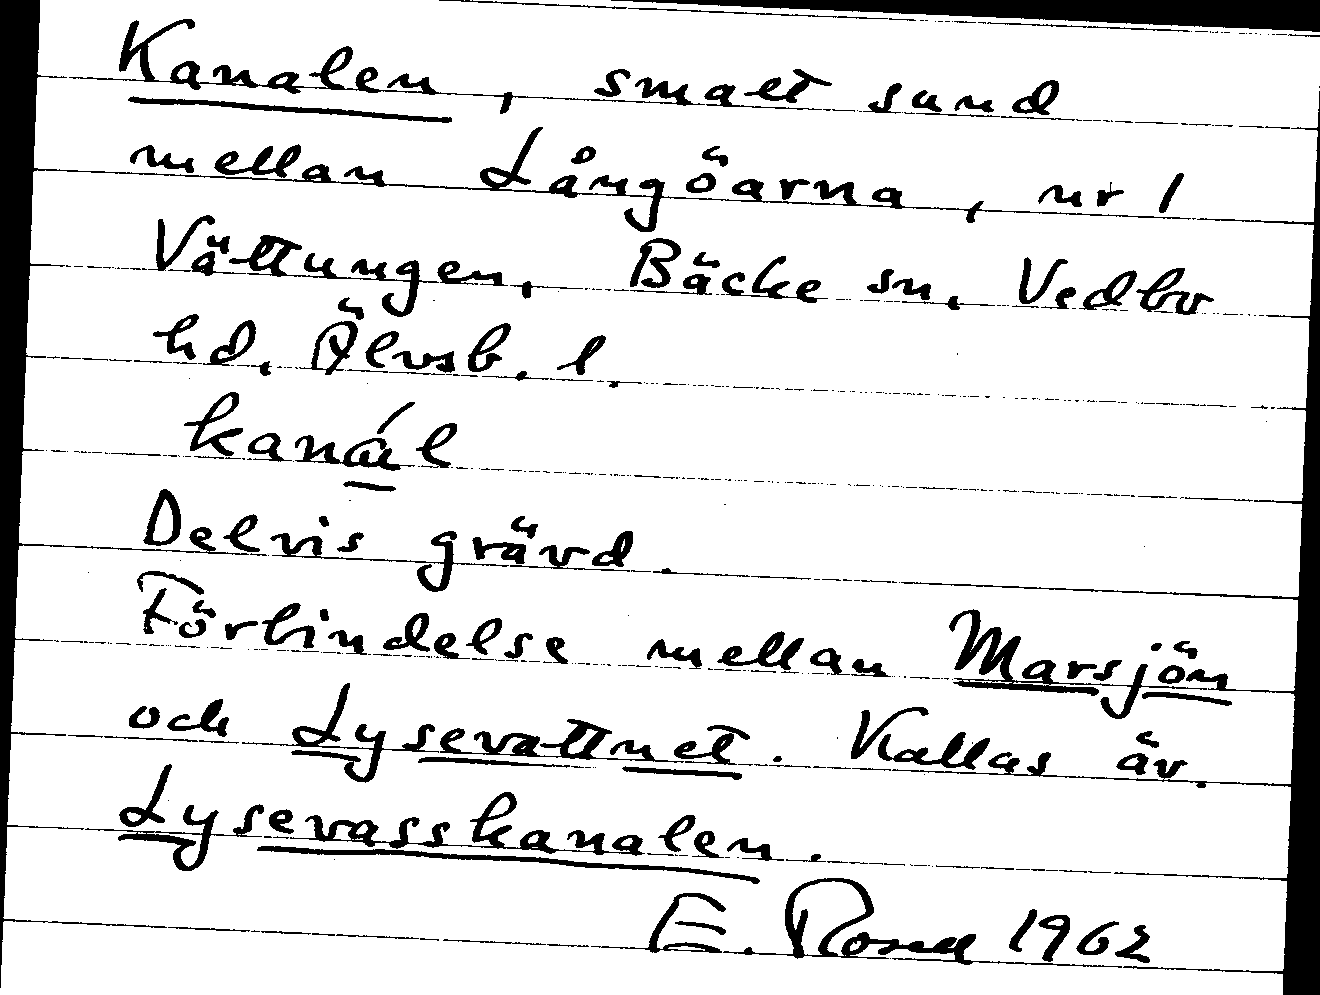 Kanalen, smalt sund
mellan Långöarna, nr 1
Vättungen, Bäcke sn, Vedbo
hd. Älvsb. l.
kanál
Delvis grävd.
Förbindelse mellan Marsjön
och Lysevattnet. Kallas äv.
Lysevasskanalen.
E. 1962